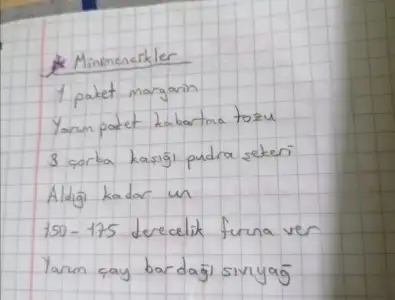 * Minimenekler
1 paket margarin
Yarım paket kabartma tozu
3 çorba kaşığı pudra şekeri
Aldığı kadar un
150-175 derecelik fırına ver
Yarım çay bardağı sıvıyağ